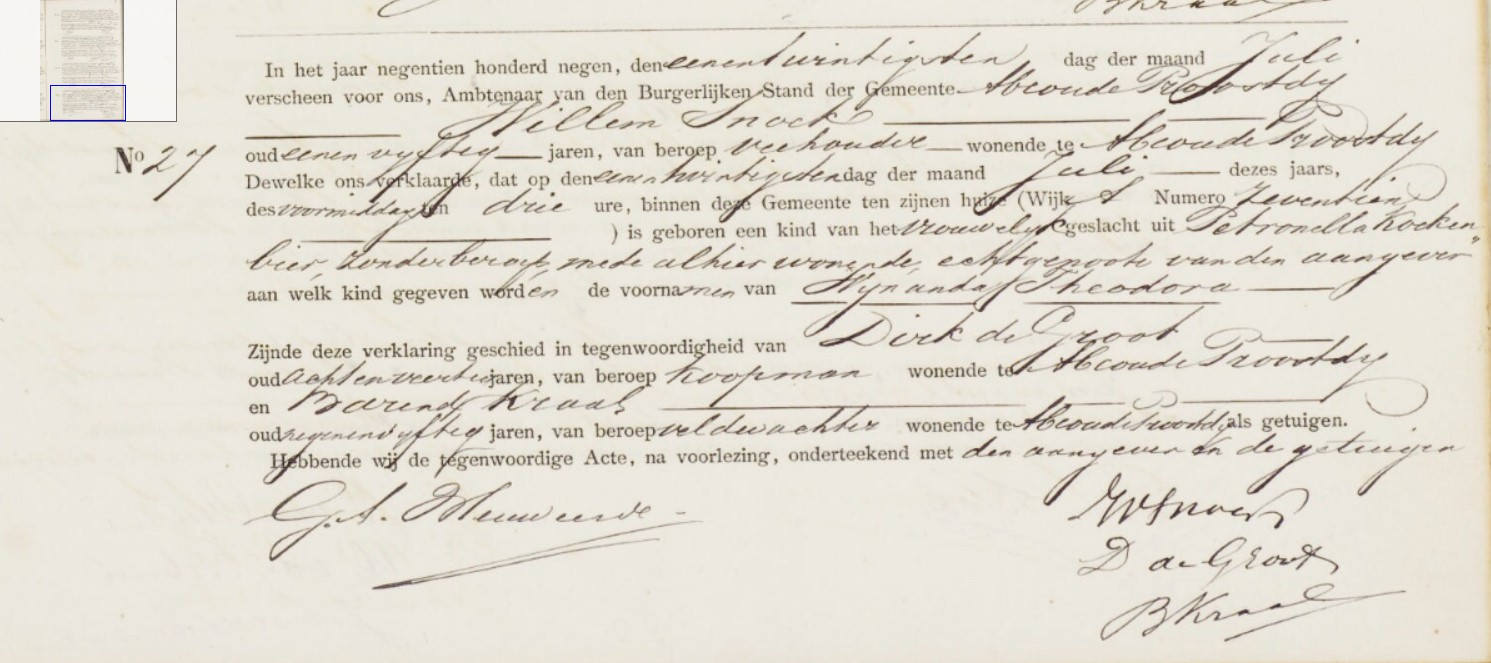 BKraal
In het jaar negentien honderd negen, den eenentwintigsten dag der maand Juli
verscheen voor ons, Ambtenaar van den Burgerlijken Stand der Gemeente Abcoude Proostdy
Willem Snoek
No 27 oud eenenvyftig jaren, van beroep veehouder wonende te Abcoude Proostdy
Dewelke ons verklaarde, dat op den eenentwintigsten dag der maand Juli dezes jaars,
des voormiddags ten drie ure, binnen deze Gemeente ten zijnen huize (Wijk Numero zeventien,
) is geboren een kind van het vrouwelyk geslacht uit Petronella Kocken„
bier, zonder beroep, mede alhier wonende, echtgenoote van den aangever
aan welk kind gegeven worden de voornamen van Wynanda Theodora
Zijnde deze verklaring geschied in tegenwoordigheid van Dirk de Groot
oud achtenveertig jaren, van beroep koopman wonende te Abcoude Proostdy
en Barend Kraal
oud negenenvyftig jaren, van beroep veldwachter wonende te Abcoude Proostdy als getuigen.
Hebbende wij de tegenwoordige Acte, na voorlezing, onderteekend met den aangever en de getuigen
G.A.
WSnoek
D de Groot
BKraal